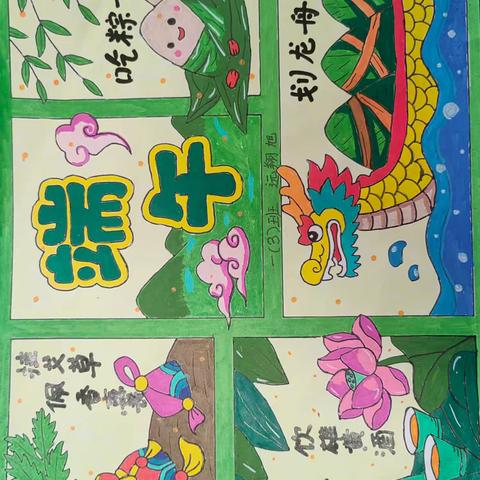 吃粽
划龙舟
端午
一(3)班 远翔旭
挂艾草
佩香囊
饮雄黄酒